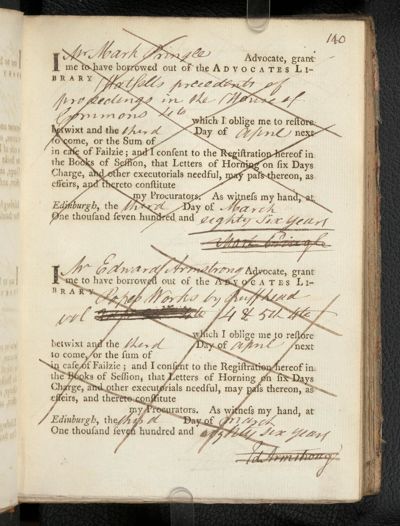 140
I Mr Mark Pringle Advocate, grant
me to have borrowed out of the ADVOCATES LI-
BRARY Hatsells precedents of
proceedings in the House of
Commons 4to
which I oblige me to reſtore
betwixt and the third Day of April next
to come, or the Sum of
in caſe of Failzie; and I conſent to the Regiſtration hereof in
the Books of Seſſion, that Letters of Horning on ſix Days
Charge, and other executorials needful, may paſs thereon, as
effeirs, and thereto conſtitute
my Procurators. As witneſs my hand, at
Edinburgh, the third Day of March
One thouſand ſeven hundred and eighty Six years
Mark Pringle
I Mr Edward Armstrong Advocate, grant
me to have borrowed out of the ADVOCATES LI-
BRARY Popes Works by Ruffhead
vol 4 & 5th 4to
which I oblige me to reſtore
betwixt and the third Day of April next
to come, or the ſum of
in caſe of Failzie; and I conſent to the Regiſtration hereof in
the Books of Seſſion, that Letters of Horning on ſix Days
Charge, and other executorials needful, may paſs thereon, as
effeirs, and thereto conſtitute
my Procurators. As witneſs my hand, at
Edinburgh, the third Day of March
One thouſand ſeven hundred and eighty six years
Ed. Armstrong